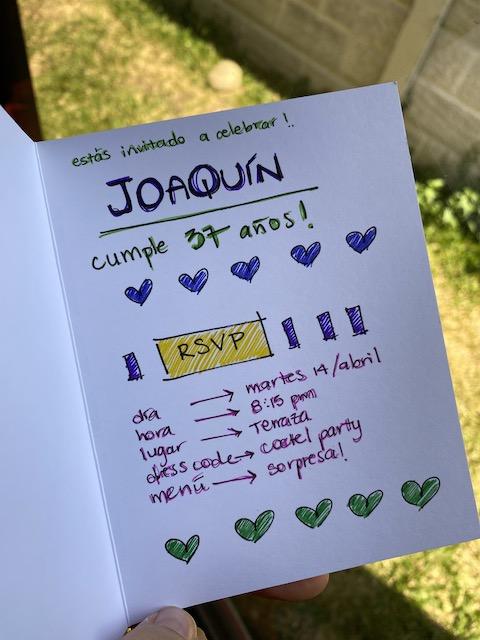 estás invitado a celebrar!.
JOAQUÍN
cumple 37 años!
RSVP
día → martes 14/abril
hora → 8:15 pm
lugar → Terraza
dress code → coctel party
menú → sorpresa!